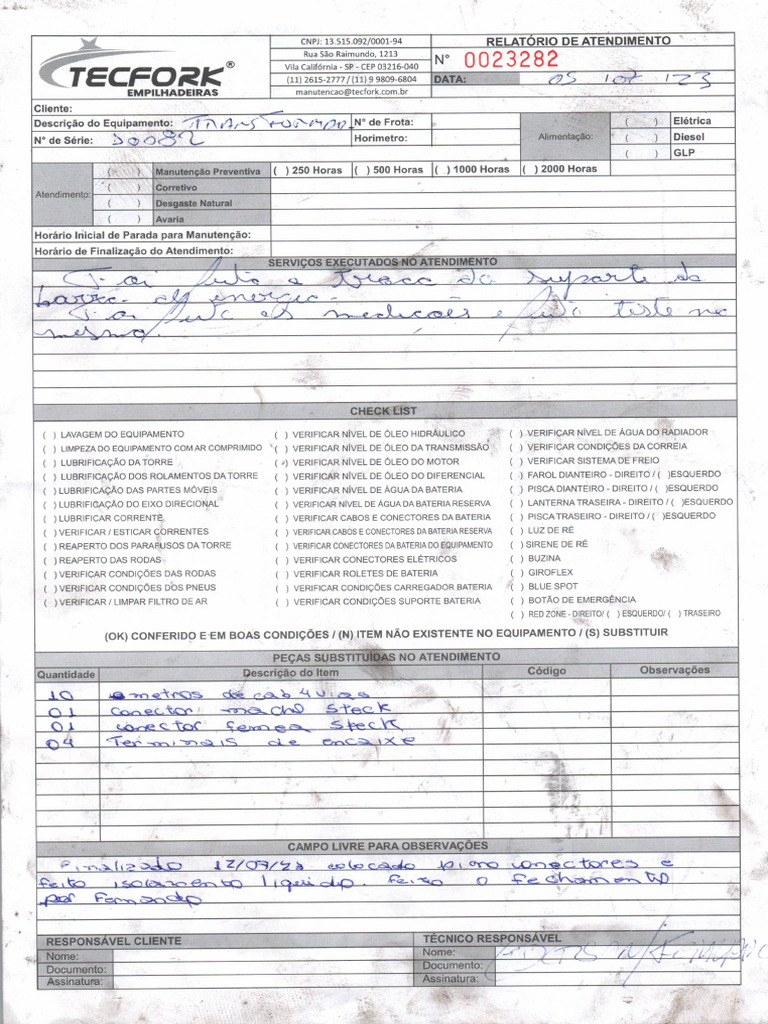 TECFORK®
EMPILHADEIRAS
CNPJ: 13.515.092/0001-94
Rua São Raimundo, 1213
Vila Califórnia - SP - CEP 03216-040
(11) 2615-2777 / (11) 9 9809-6804
manutencao@tecfork.com.br
RELATÓRIO DE ATENDIMENTO
N° 0023282
DATA: 05 / 07 / 23
Cliente:
Descrição do Equipamento: N° de Frota:
N° de Série: Horimetro:
Alimentação:
( ) Elétrica
( ) Diesel
( ) GLP
Atendimento:
( ) Manutenção Preventiva ( ) 250 Horas ( ) 500 Horas ( ) 1000 Horas ( ) 2000 Horas
( ) Corretivo
( ) Desgaste Natural
( ) Avaria
Horário Inicial de Parada para Manutenção:
Horário de Finalização do Atendimento:
SERVIÇOS EXECUTADOS NO ATENDIMENTO
Foi feito a troca do suporte da
barra de energia.
Foi feita as medições e feito teste no
mesmo.
CHECK LIST
( ) LAVAGEM DO EQUIPAMENTO
( ) LIMPEZA DO EQUIPAMENTO COM AR COMPRIMIDO
( ) LUBRIFICAÇÃO DA TORRE
( ) LUBRIFICAÇÃO DOS ROLAMENTOS DA TORRE
( ) LUBRIFICAÇÃO DAS PARTES MÓVEIS
( ) LUBRIFICAÇÃO DO EIXO DIRECIONAL
( ) LUBRIFICAR CORRENTE
( ) VERIFICAR / ESTICAR CORRENTES
( ) REAPERTO DOS PARAFUSOS DA TORRE
( ) REAPERTO DAS RODAS
( ) VERIFICAR CONDIÇÕES DAS RODAS
( ) VERIFICAR CONDIÇÕES DOS PNEUS
( ) VERIFICAR / LIMPAR FILTRO DE AR
( ) VERIFICAR NÍVEL DE ÓLEO HIDRÁULICO
( ) VERIFICAR NÍVEL DE ÓLEO DA TRANSMISSÃO
( ) VERIFICAR NÍVEL DE ÓLEO DO MOTOR
( ) VERIFICAR NÍVEL DE ÓLEO DO DIFERENCIAL
( ) VERIFICAR NÍVEL DE ÁGUA DA BATERIA
( ) VERIFICAR NÍVEL DE ÁGUA DA BATERIA RESERVA
( ) VERIFICAR CABOS E CONECTORES DA BATERIA
( ) VERIFICAR CABOS E CONECTORES DA BATERIA RESERVA
( ) VERIFICAR CONECTORES DA BATERIA DO EQUIPAMENTO
( ) VERIFICAR CONECTORES ELÉTRICOS
( ) VERIFICAR ROLETES DE BATERIA
( ) VERIFICAR CONDIÇÕES CARREGADOR BATERIA
( ) VERIFICAR CONDIÇÕES SUPORTE BATERIA
( ) VERIFICAR NÍVEL DE ÁGUA DO RADIADOR
( ) VERIFICAR CONDIÇÕES DA CORREIA
( ) VERIFICAR SISTEMA DE FREIO
( ) FAROL DIANTEIRO - DIREITO / ( )ESQUERDO
( ) PISCA DIANTEIRO - DIREITO / ( )ESQUERDO
( ) LANTERNA TRASEIRA - DIREITO / ( )ESQUERDO
( ) PISCA TRASEIRO - DIREITO / ( )ESQUERDO
( ) LUZ DE RÉ
( ) SIRENE DE RÉ
( ) BUZINA
( ) GIROFLEX
( ) BLUE SPOT
( ) BOTÃO DE EMERGÊNCIA
( ) RED ZONE - DIREITO/ ( ) ESQUERDO/ ( ) TRASEIRO
(OK) CONFERIDO E EM BOAS CONDIÇÕES / (N) ITEM NÃO EXISTENTE NO EQUIPAMENTO / (S) SUBSTITUIR
PEÇAS SUBSTITUÍDAS NO ATENDIMENTO
Quantidade Descrição do Item Código Observações
10 metros de cab 4 vias
01 conector macho Steck
01 conector femea Steck
04 Terminais de encaixe
CAMPO LIVRE PARA OBSERVAÇÕES
Finalizado 12/07/23 colocado conectores e
feito isolamento liquido. feito o fechamento
por Fernando
RESPONSÁVEL CLIENTE
Nome:
Documento:
Assinatura:
TÉCNICO RESPONSÁVEL
Nome:
Documento:
Assinatura: